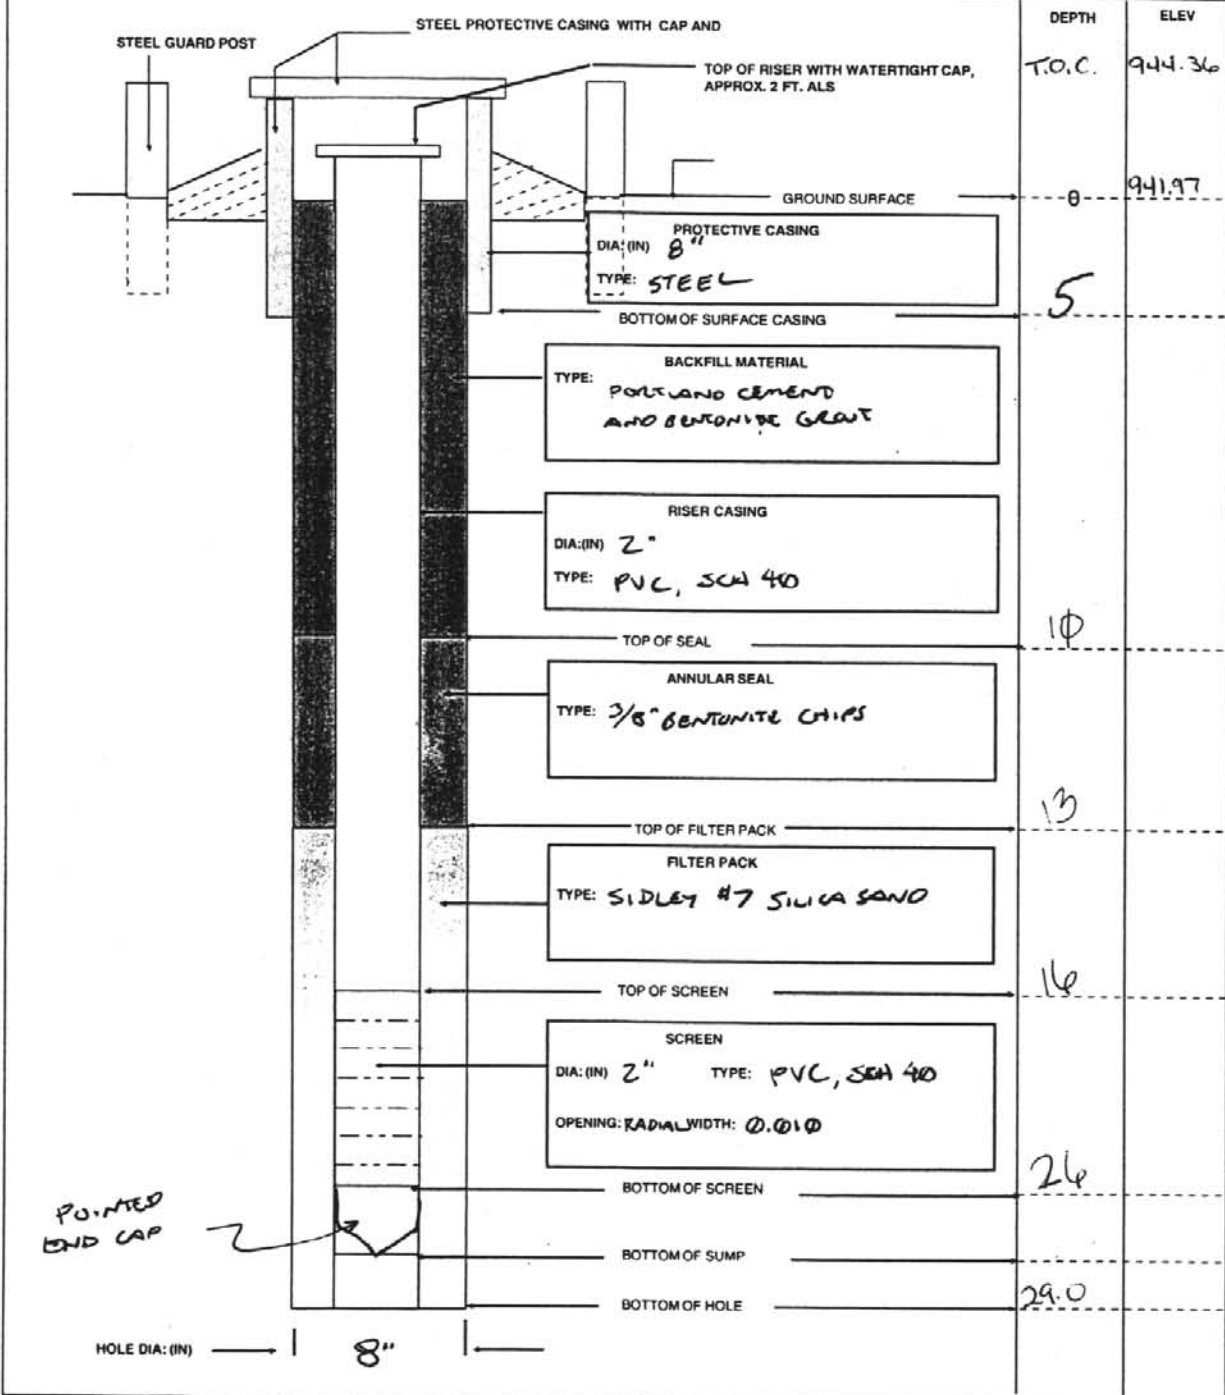 DEPTH ELEV
STEEL PROTECTIVE CASING WITH CAP AND
STEEL GUARD POST
TOP OF RISER WITH WATERTIGHT CAP,
APPROX. 2 FT. ALS
T.O.C. 944.36
GROUND SURFACE 0 941.97
PROTECTIVE CASING
DIA: (IN) 8"
TYPE: STEEL
BOTTOM OF SURFACE CASING 5
BACKFILL MATERIAL
TYPE:
PORTLAND CEMENT
AND BENTONITE GROUT
RISER CASING
DIA:(IN) 2"
TYPE: PVC, SCH 40
TOP OF SEAL 10
ANNULAR SEAL
TYPE: 3/8" BENTONITE CHIPS
TOP OF FILTER PACK 13
FILTER PACK
TYPE: SIDLEY #7 SILICA SAND
TOP OF SCREEN 16
SCREEN
DIA: (IN) 2" TYPE: PVC, SCH 40
OPENING: RADIAL WIDTH: 0.010
BOTTOM OF SCREEN 26
POINTED
END CAP
BOTTOM OF SUMP
BOTTOM OF HOLE 29.0
HOLE DIA: (IN) 8"